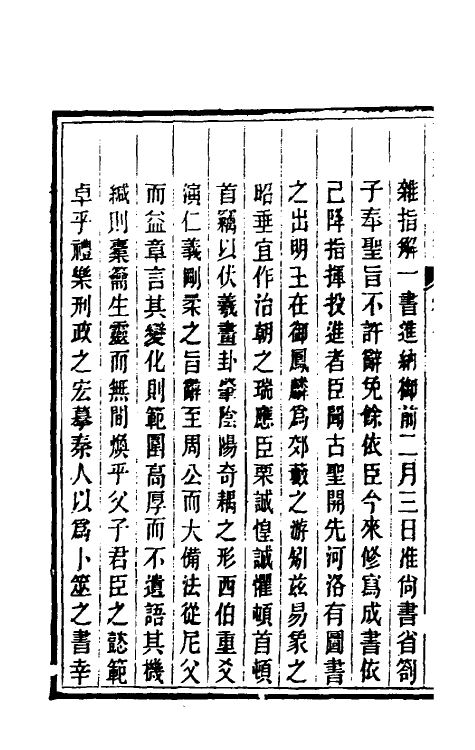 雜指解一書進納御前二月三日准尚書省劄
子奉聖旨不許辭免餘依臣今來修寫成書依
已降指揮投進者臣聞古聖開先河洛有圖書
之出明王在御鳳麟為郊藪之游矧茲易象之
昭垂宜作治朝之瑞應臣栗誠惶誠懼頓首頓
首竊以伏羲畫卦肇陰陽奇耦之形西伯重爻
演仁義剛柔之旨辭至周公而大備法從尼父
而益章言其變化則範圍高厚而不遺語其機
緘則橐籥生靈而無間煥乎父子君臣之懿範
卓乎禮樂刑政之宏摹秦人以為卜筮之書幸